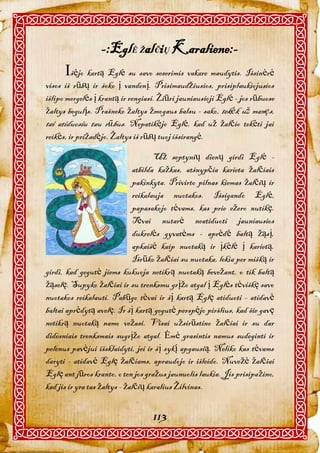 -:Eglė žalčių Karalienė:-
Išėjo kartą Eglė su savo seserimis vakare maudytis. Išsinėrė
visos iš rūbų ir šoko į vandenį. Prisimaudžiusios, prisiplaukiojusios
išlipo mergelės į krantą ir rengiasi. Žiūri jauniausioji Eglė - jos rūbuose
žaltys beguĺįs. Prašneko žaltys žmogaus balsu - sako, tekėk už manęs,
tai atiduosiu tau rūbus. Nepatikėjo Eglė, kad už žalčio tekėti jai
reikės, ir prižadėjo. Žaltys iš rūbų tuoj išsirangė.
Už septynių dienų girdi Eglė -
atbilda kažkas, atšnypščia karieta žalčiais
pakinkyta. Privirto pilnas kiemas žalčių ir
reikalauja nuotakos. Išsigando Eglė,
papasakojo tėvams, kas prie ežero nutiko.
Tėvai nutarė neatiduoti jauniausios
dukrelės gyvatėms - aprėdė baltą žąsį,
apkaišė kaip nuotaką ir įkėlė į karietą.
Išrūko žalčiai su nuotaka, lekia per mišką ir
girdi, kad gegutė jiems kukuoja netikrą nuotaką bevežant, o tik baltą
žąselę. Supyko žalčiai ir su trenksmu grįžo atgal į Eglės tėviškę savo
nuotakos reikalauti. Pabūgo tėvai ir šį kartą Eglę atiduoti - atidavė
baltai aprėdytą avelę. Ir šį kartą gegutė perspėjo piršlius, kad šie gavę
netikrą nuotaką namo vežasi. Visai užsirūstino žalčiai ir su dar
didesniais trenksmais sugrįžo atgal. Ėmė grasintis namus sudeginti ir
pelenus pavėjui išsklaidyti, jei ir šį sykį apgausią. Neliko kas tėvams
daryti - atidavė Eglę žalčiams, apraudojo ir išleido. Nuvežė žalčiai
Eglę ant jūros kranto, o ten jos gražus jaunuolis laukia. Jis prisipažino,
kad jis ir yra tas žaltys - žalčių karalius Žilvinas.
113